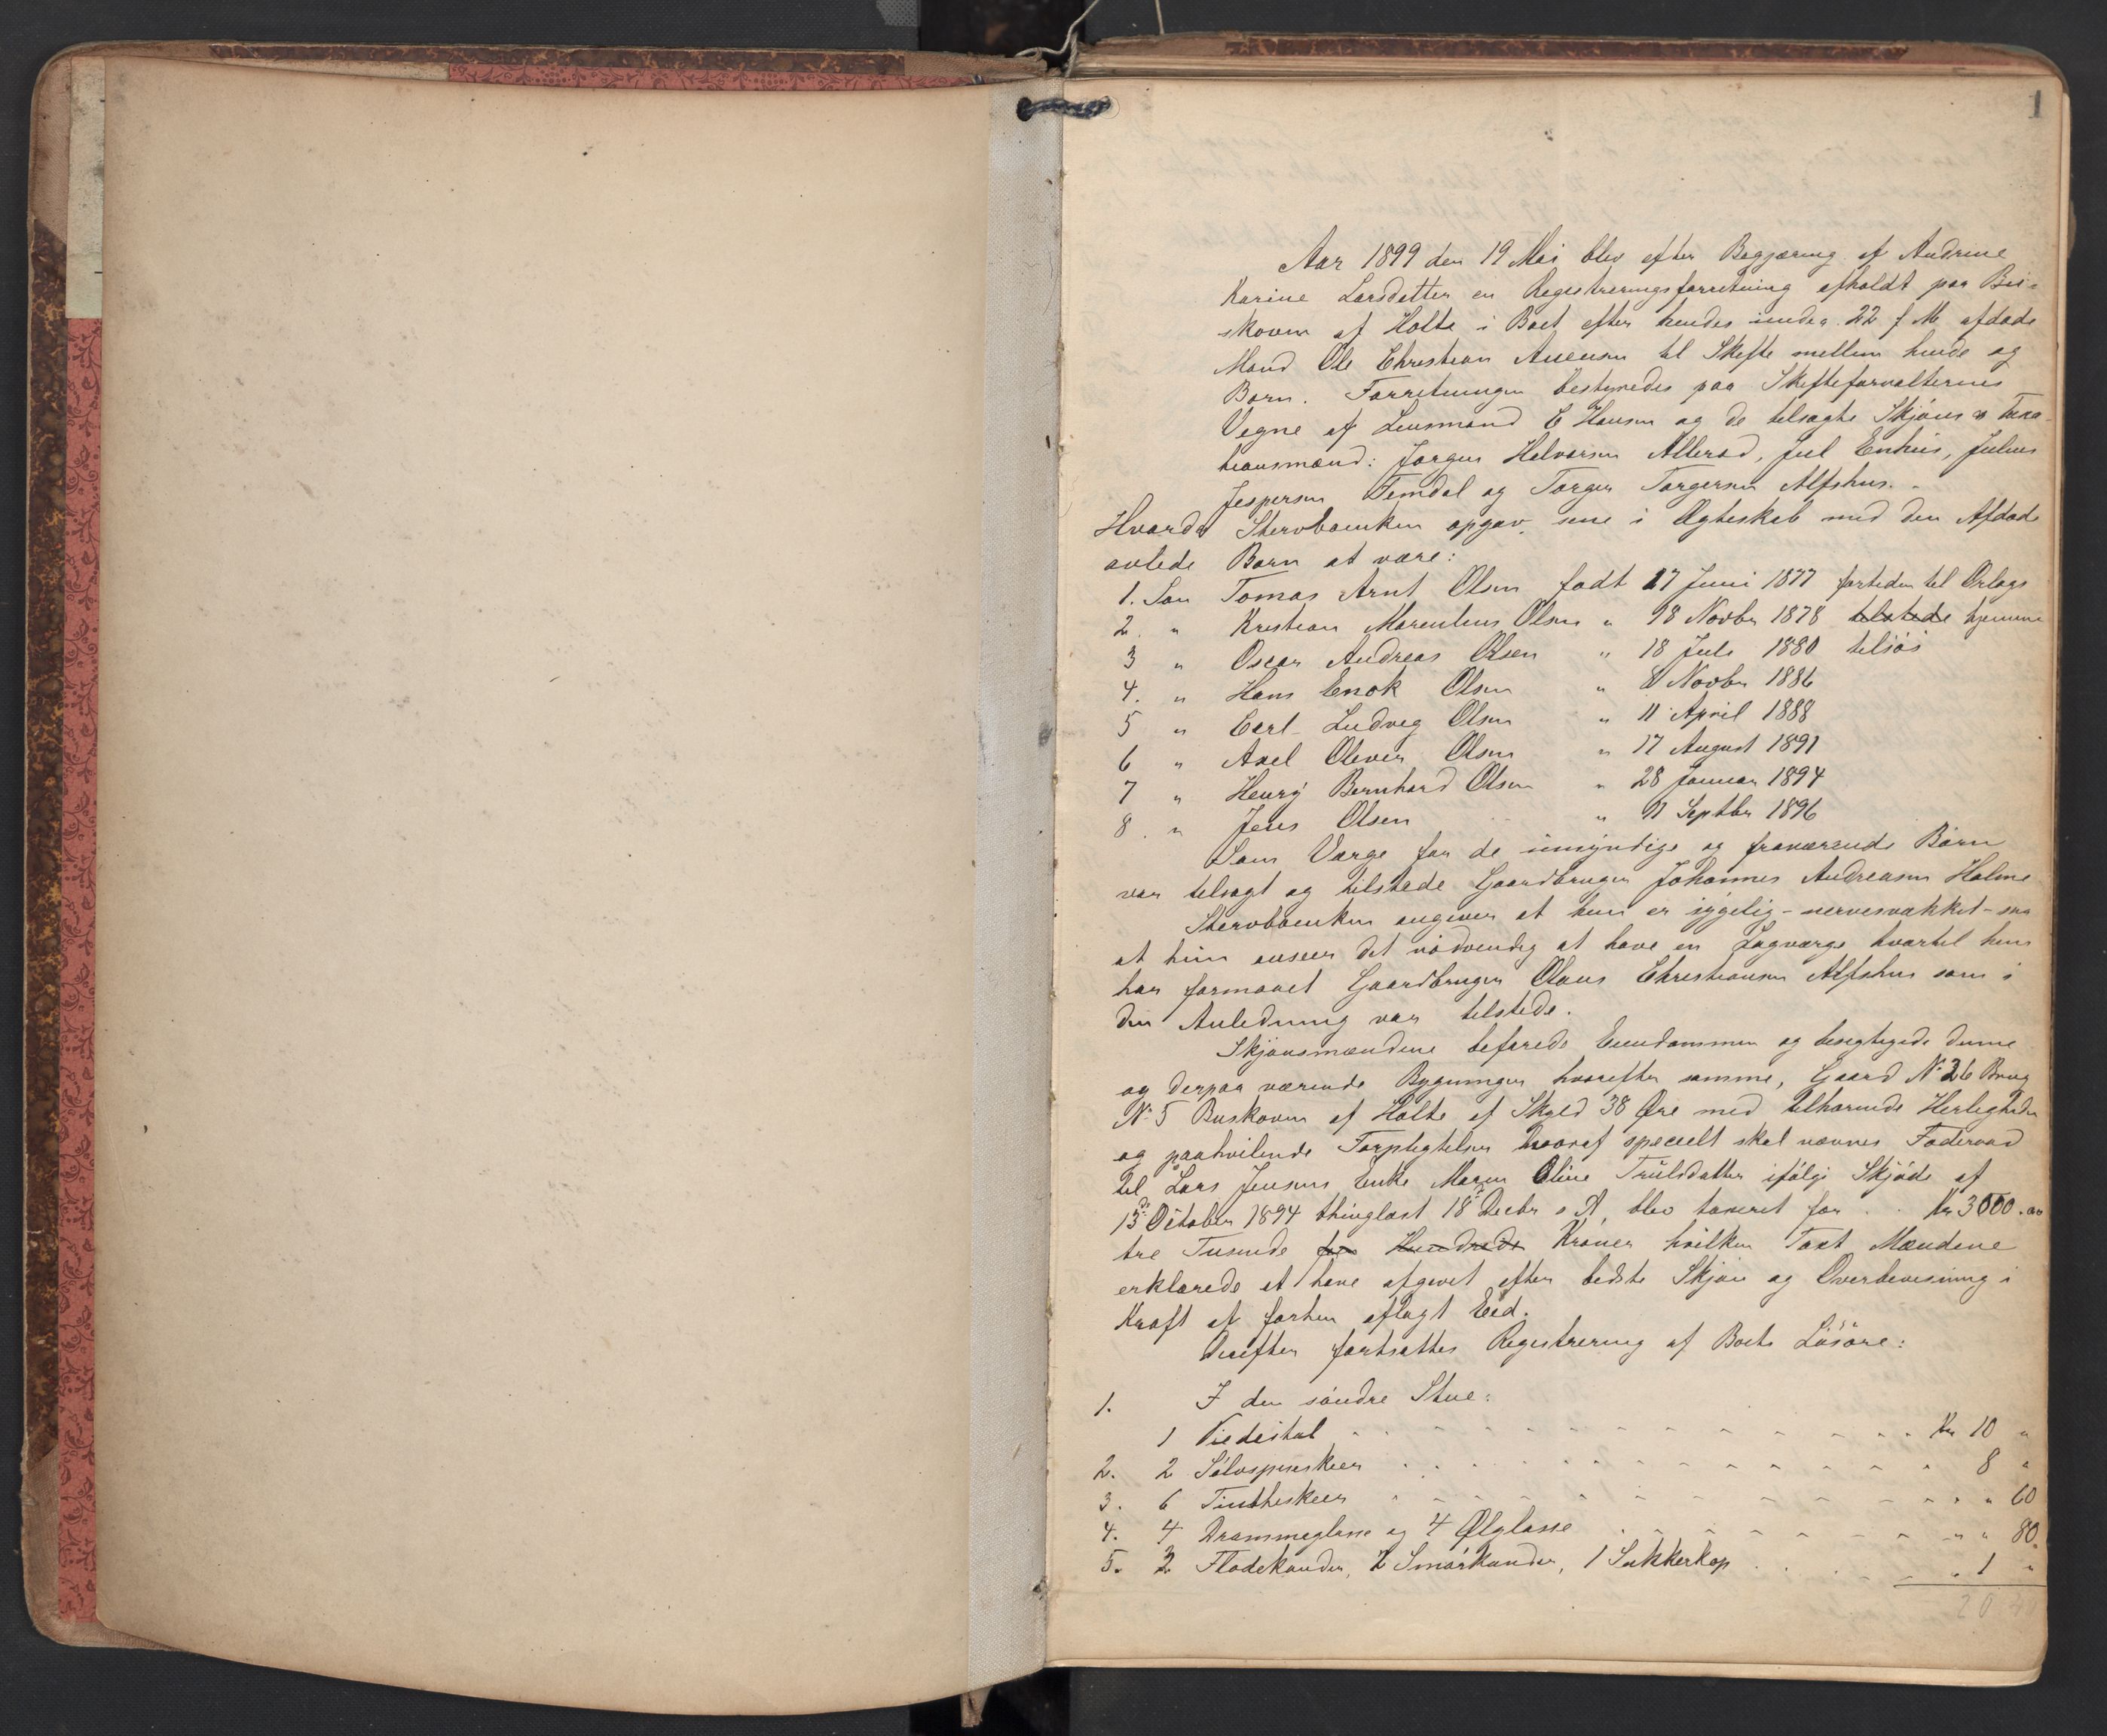 1
Aar 1899 den 19 Mai blev efter Begjæring af Andrine
Karine Larsdatter en Registreringsforretning afholdt paa Bu-
skoven af Holte i Boet efter hendes under 22 f. M. afdøde
Mand Ole Christian Anensen til Skifte mellem hende og
Børn. Forretningen bestyredes paa Skifteforvalterens
Vegne af Lensmand C Hansen og de tilsagte Skjøns & Taxa-
tionsmænd: Jørgen Halvorsen Allerød, Juel Enhus, Julius
Jespersen Femdal og Torger Torgersen Alfshus.
Hvorda Stervboenken opgav sine i Ægteskab med den Afdøde
avlede Børn at være:
1. Søn Tomas Arnt Olsen født 27 Juni 1877 fortiden til Orlogs
2. " Kristian Marenius Olsen " 18 Novbr 1878 tilstede hjemme
3 " Oscar Andreas Olsen " 18 Juli 1880 tilsjøs
4. " Hans Enok Olsen " 8 Novbr 1886
5 " Carl Ludvig Olsen " 11 April 1888
6 " Axel Oliver Olsen " 17 August 1891
7 " Henry Bernhard Olsen " 28 Januar 1894
8. " Jens Olsen " 11 Septbr 1896
Som Værge for de umyndige og fraværende Børn
var tilsagt og tilstede Gaardbruger Johannes Andreasen Holme
Stervboenken angiver at hun er sygelig - nervesvækket - saa
at hun anseer det nødvendig at have en Lagværge hvortil hun
har formaaet Gaardbruger Olaus Christiansen Alfshus som i
den Anledning var tilstede.
Skjønsmændene befarede Eiendommen og besigtigede denne
og derpaa værende Bygninger hvorefter samme, Gaard No 26 Brug
No 5 Buskoven af Holte af Skyld 38 Øre med tilhørende Herligheder
og paahvilende Forpligtelser hvoraf specielt skal nævnes Føderaad
til Lars Jensens Enke Maren Oline Trulsdatter ifølge Skjøde af
13de October 1894 thinglæst 18de Decbr s A, blev taxeret for . . Kr 3000.00
tre Tusinde fem Hundrede Kroner hvilken Taxt Mændene
erklærede at have afgivet efter bedste Skjøn og Overbevisning i
Kraft af forhen aflagt Eed.
Derefter fortsattes Registrering af Boets Løsøre:
1. I den søndre Stue:
1 Piedistal Kr 10 "
2. 2 Sølvspiseskeer 8 "
3. 6 Tintheskeer " 60
4. 4 Drammeglasse og 4 Ølglasse " 80
5. 2 Flødekander, 2 Smørkander, 1 Sukkerkop " 1 "
20 40